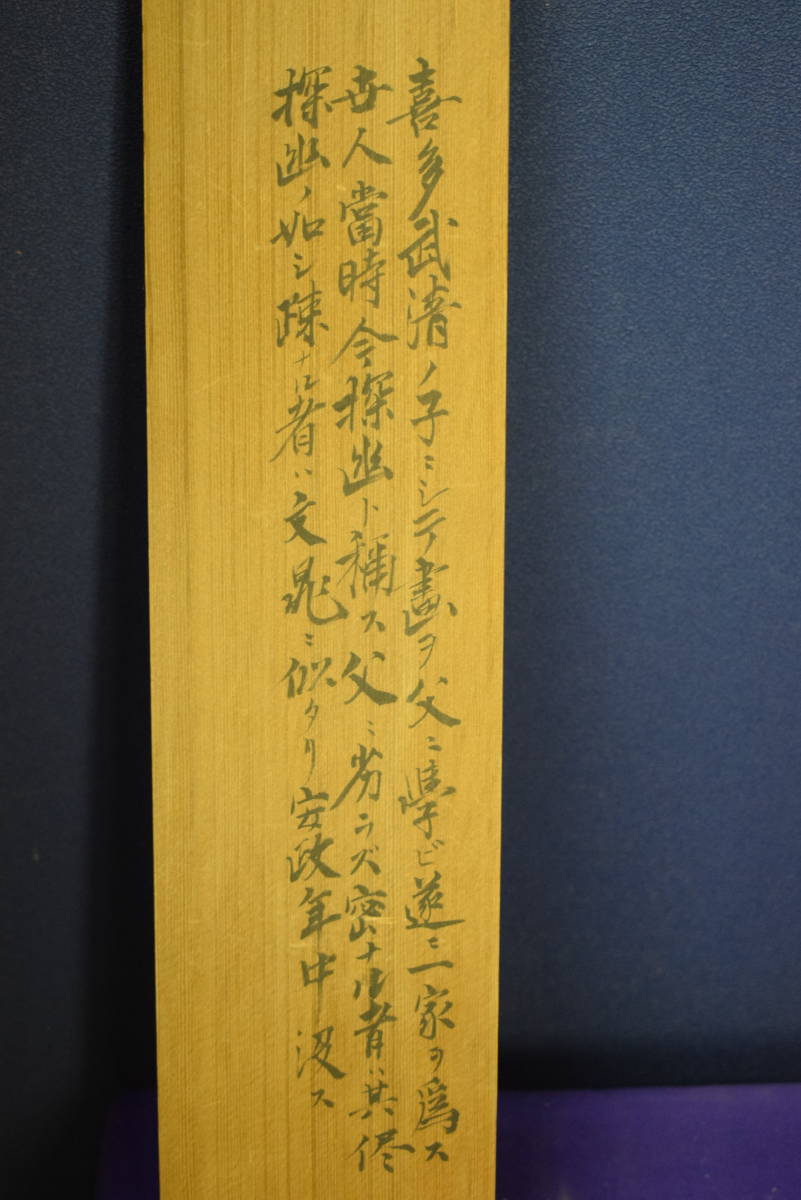 喜多武清ノ子ニシテ畫ヲ父ニ學ビ遂ニ一家ヲ爲ス
世人當時今探幽ト稱ス父ニ劣ラズ密ナル者ハ其侭
探幽ノ如シ疎ナル者ハ文晁ニ似タリ安政年中沒ス